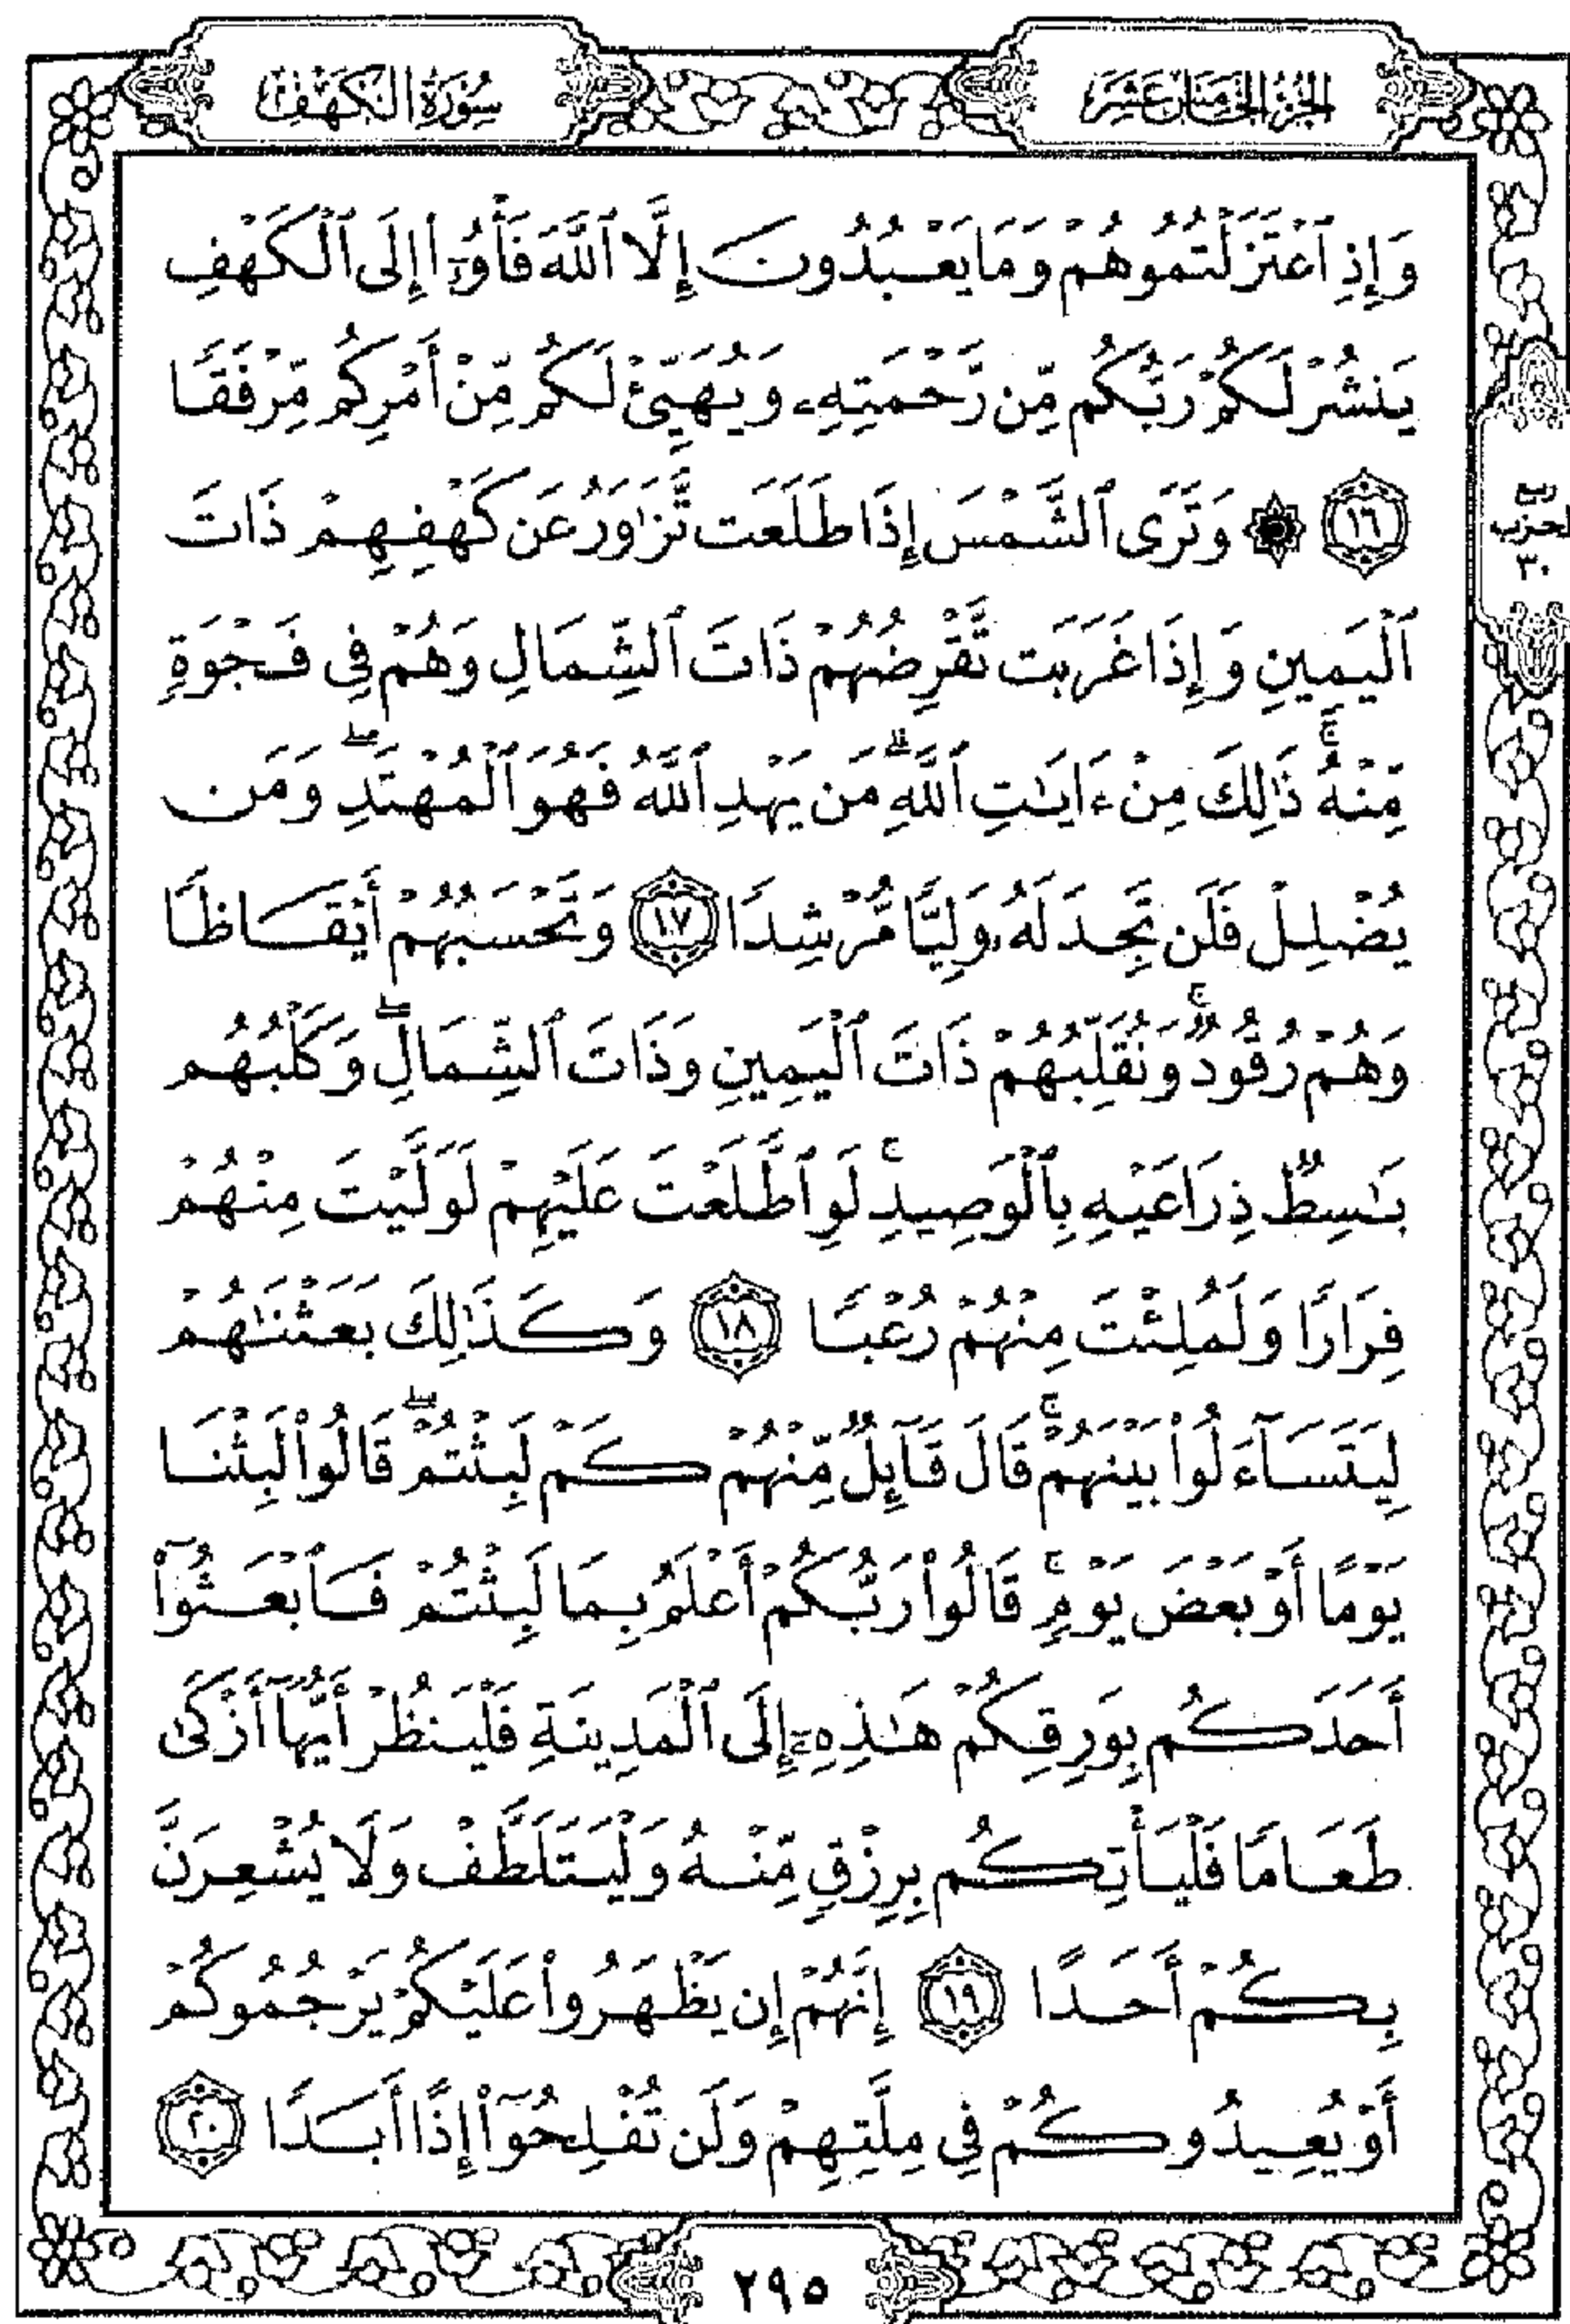 الجزء الخامس عشر
سورة الكهف
وَإِذِ ٱعْتَزَلْتُمُوهُمْ وَمَا يَعْبُدُونَ إِلَّا ٱللَّهَ فَأْوُۥٓا۟ إِلَى ٱلْكَهْفِ
يَنشُرْ لَكُمْ رَبُّكُم مِّن رَّحْمَتِهِۦ وَيُهَيِّئْ لَكُم مِّنْ أَمْرِكُم مِّرْفَقًا
ربع
الحزب
٣٠
١٦ ۞ وَتَرَى ٱلشَّمْسَ إِذَا طَلَعَت تَّزَٰوَرُ عَن كَهْفِهِمْ ذَاتَ
ٱلْيَمِينِ وَإِذَا غَرَبَت تَّقْرِضُهُمْ ذَاتَ ٱلشِّمَالِ وَهُمْ فِى فَجْوَةٍ
مِّنْهُ ۚ ذَٰلِكَ مِنْ ءَايَٰتِ ٱللَّهِ ۗ مَن يَهْدِ ٱللَّهُ فَهُوَ ٱلْمُهْتَدِ ۖ وَمَن
يُضْلِلْ فَلَن تَجِدَ لَهُۥ وَلِيًّا مُّرْشِدًا ١٧ وَتَحْسَبُهُمْ أَيْقَاظًا
وَهُمْ رُقُودٌ ۚ وَنُقَلِّبُهُمْ ذَاتَ ٱلْيَمِينِ وَذَاتَ ٱلشِّمَالِ ۖ وَكَلْبُهُم
بَٰسِطٌ ذِرَاعَيْهِ بِٱلْوَصِيدِ ۚ لَوِ ٱطَّلَعْتَ عَلَيْهِمْ لَوَلَّيْتَ مِنْهُمْ
فِرَارًا وَلَمُلِئْتَ مِنْهُمْ رُعْبًا ١٨ وَكَذَٰلِكَ بَعَثْنَٰهُمْ
لِيَتَسَآءَلُوا۟ بَيْنَهُمْ ۚ قَالَ قَآئِلٌ مِّنْهُمْ كَمْ لَبِثْتُمْ ۖ قَالُوا۟ لَبِثْنَا
يَوْمًا أَوْ بَعْضَ يَوْمٍ ۚ قَالُوا۟ رَبُّكُمْ أَعْلَمُ بِمَا لَبِثْتُمْ فَٱبْعَثُوٓا۟
أَحَدَكُم بِوَرِقِكُمْ هَٰذِهِۦٓ إِلَى ٱلْمَدِينَةِ فَلْيَنظُرْ أَيُّهَآ أَزْكَىٰ
طَعَامًا فَلْيَأْتِكُم بِرِزْقٍ مِّنْهُ وَلْيَتَلَطَّفْ وَلَا يُشْعِرَنَّ
بِكُمْ أَحَدًا ١٩ إِنَّهُمْ إِن يَظْهَرُوا۟ عَلَيْكُمْ يَرْجُمُوكُمْ
أَوْ يُعِيدُوكُمْ فِى مِلَّتِهِمْ وَلَن تُفْلِحُوٓا۟ إِذًا أَبَدًا ٢٠
٢٩٥